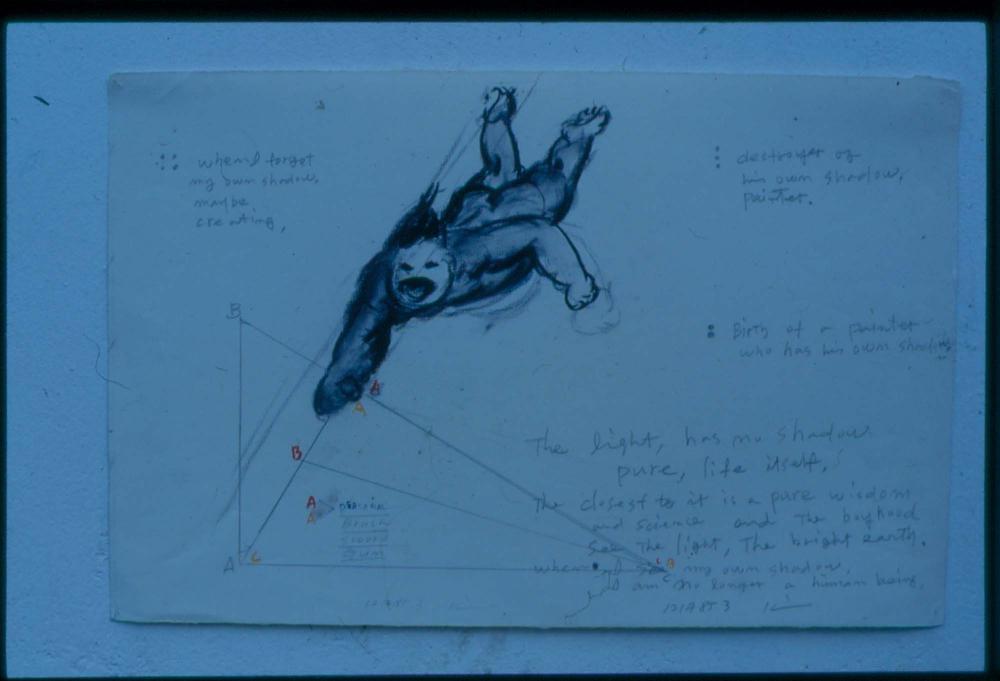 when I forget
my own shadow,
maybe
creating,
destroyer of
his own shadow,
painter.
B
Birth of a painter
who has his own shadow
A
A
B
The light, has no shadow
pure, life itself,
The closest to it is a pure wisdom
and science and The boyhood
see The light, The bright earth.
A
A
Brush
Sword
Gum
when I see my own shadow,
I am no longer a human being.
A
C
B
C